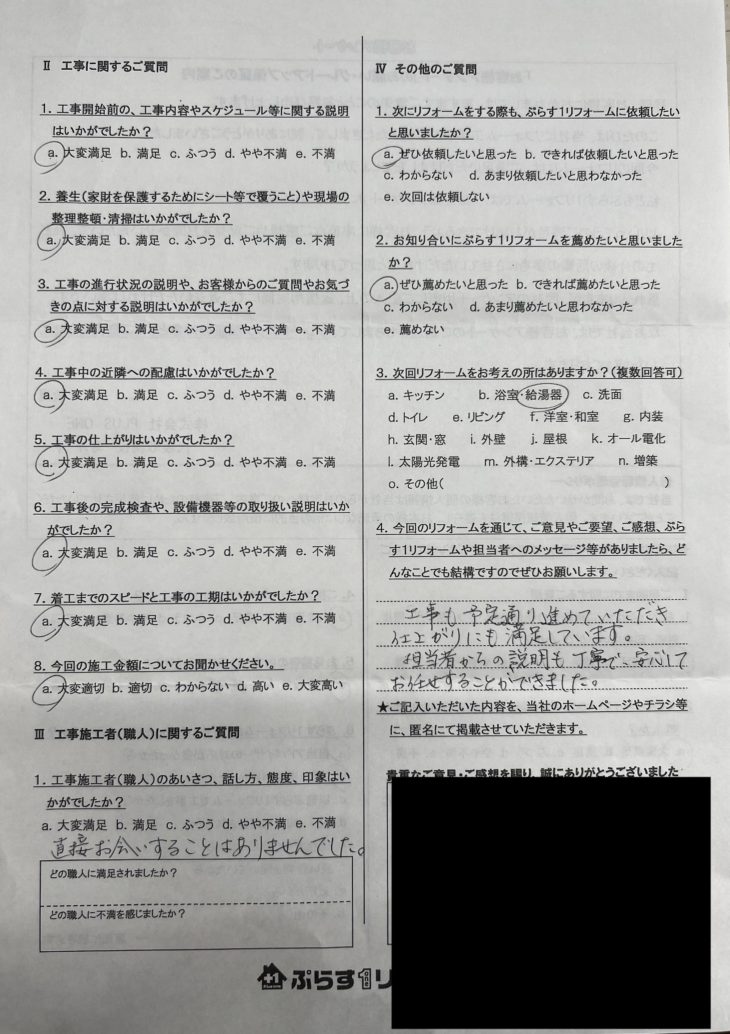 Ⅱ 工事に関するご質問
1. 工事開始前の、工事内容やスケジュール等に関する説明
はいかがでしたか?
a. 大変満足 b. 満足 c. ふつう d. やや不満 e. 不満
2. 養生(家財を保護するためにシート等で覆うこと)や現場の
整理整頓・清掃はいかがでしたか?
a. 大変満足 b. 満足 c. ふつう d. やや不満 e. 不満
3. 工事の進行状況の説明や、お客様からのご質問やお気づ
きの点に対する説明はいかがでしたか?
a. 大変満足 b. 満足 c. ふつう d. やや不満 e. 不満
4. 工事中の近隣への配慮はいかがでしたか?
a. 大変満足 b. 満足 c. ふつう d. やや不満 e. 不満
5. 工事の仕上がりはいかがでしたか?
a. 大変満足 b. 満足 c. ふつう d. やや不満 e. 不満
6. 工事後の完成検査や、設備機器等の取り扱い説明はいか
がでしたか?
a. 大変満足 b. 満足 c. ふつう d. やや不満 e. 不満
7. 着工までのスピードと工事の工期はいかがでしたか?
a. 大変満足 b. 満足 c. ふつう d. やや不満 e. 不満
8. 今回の施工金額についてお聞かせください。
a. 大変適切 b. 適切 c. わからない d. 高い e. 大変高い
Ⅲ 工事施工者(職人)に関するご質問
1. 工事施工者(職人)のあいさつ、話し方、態度、印象はい
かがでしたか?
a. 大変満足 b. 満足 c. ふつう d. やや不満 e. 不満
直接お会いすることはありませんでした。
どの職人に満足されましたか?
どの職人に不満を感じましたか?
Ⅳ その他のご質問
1. 次にリフォームをする際も、ぷらす1リフォームに依頼したい
と思いましたか?
a. ぜひ依頼したいと思った b. できれば依頼したいと思った
c. わからない d. あまり依頼したいと思わなかった
e. 次回は依頼しない
2. お知り合いにぷらす1リフォームを薦めたいと思いました
か?
a. ぜひ薦めたいと思った b. できれば薦めたいと思った
c. わからない d. あまり薦めたいと思わなかった
e. 薦めない
3. 次回リフォームをお考えの所はありますか?(複数回答可)
a. キッチン b. 浴室・給湯器 c. 洗面
d. トイレ e. リビング f. 洋室・和室 g. 内装
h. 玄関・窓 i. 外壁 j. 屋根 k. オール電化
l. 太陽光発電 m. 外構・エクステリア n. 増築
o. その他( )
4. 今回のリフォームを通じて、ご意見やご要望、ご感想、ぷら
す1リフォームや担当者へのメッセージ等がありましたら、ど
んなことでも結構ですのでぜひお願いします。
工事も予定通り進めていただき
仕上がりにも満足しています。
担当者からの説明も丁寧で、安心して
お任せすることができました。
★ご記入いただいた内容を、当社のホームページやチラシ等
に、匿名にて掲載させていただきます。
貴重なご意見・ご感想を賜り、誠にありがとうございました
+1
ぷらす1リ
one